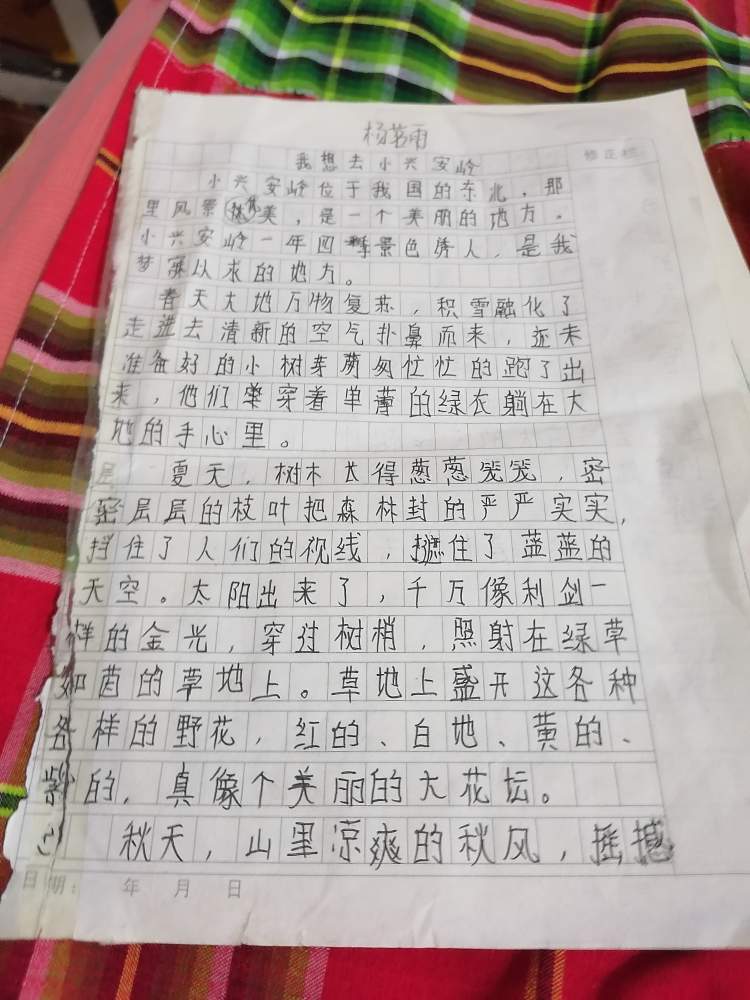 杨若雨
我想去小兴安岭
修正栏
小兴安岭位于我国的东北，那
里风景优美，是一个美丽的地方。
小兴安岭一年四季景色诱人，是我
梦寐以求的地方。
春天大地万物复苏，积雪融化了
走进去清新的空气扑鼻而来，还未
准备好的小树芽萌匆忙忙的跑了出
来，他们单穿着单薄的绿衣躺在大
地的手心里。
层 夏天，树木长得葱葱笼笼，密
密层层的枝叶把森林封的严严实实，
挡住了人们的视线，遮住了蓝蓝的
天空。太阳出来了，千万像利剑一
样的金光，穿过树梢，照射在绿草
如茵的草地上。草地上盛开这各种
各样的野花，红的、白地、黄的、
紫的，真像个美丽的大花坛。
秋天，山里凉爽的秋风，摇撼
日期： 年 月 日